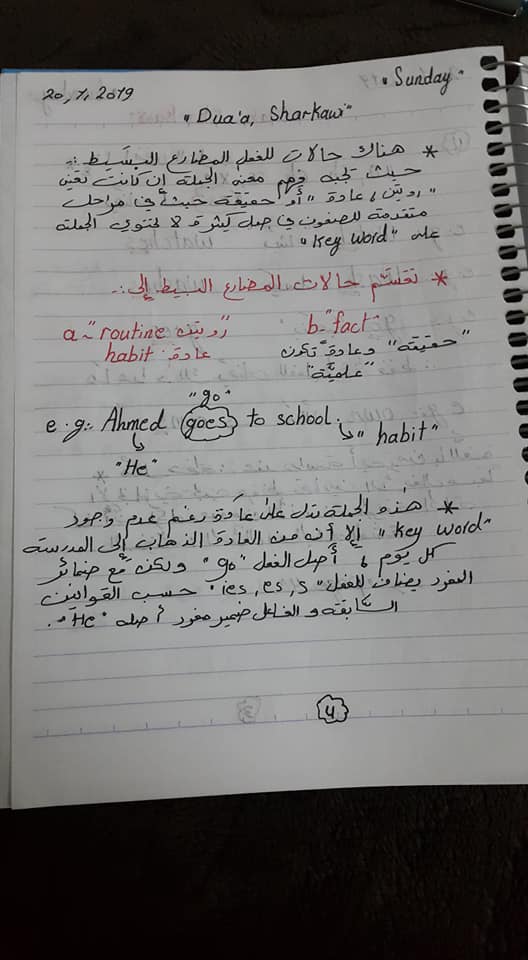 20, 7, 2019
"Sunday"
"Dua'a, Sharkawi"
* هناك حالات للفعل المضارع البسيط :.
حيث يجب فهم معنى الجملة إن كانت تعني
"روتين، عادة" أو حقيقة حيث أن في مراحل
متقدمة للصفوف في جمل كثيرة لا تحتوي الجملة
على "Key word"
* تقسم حالات المضارع البسيط إلى :.
a- "routine روتين"
habit عادة
b- "fact"
"حقيقة" وعادةً تكون
"علمية"
"go"
e.g:. Ahmed goes to school.
"He"
"habit"
* هذه الجملة تدل على عادة رغم عدم وجود
"Key word" إلا أنه من العادة الذهاب إلى المدرسة
كل يوم، أصل الفعل "go" ولكن مع ضمائر
المفرد يضاف للفعل "ies, es, s" حسب القوانين
السابقة و الفاعل ضمير مفرد أصله "He".
4